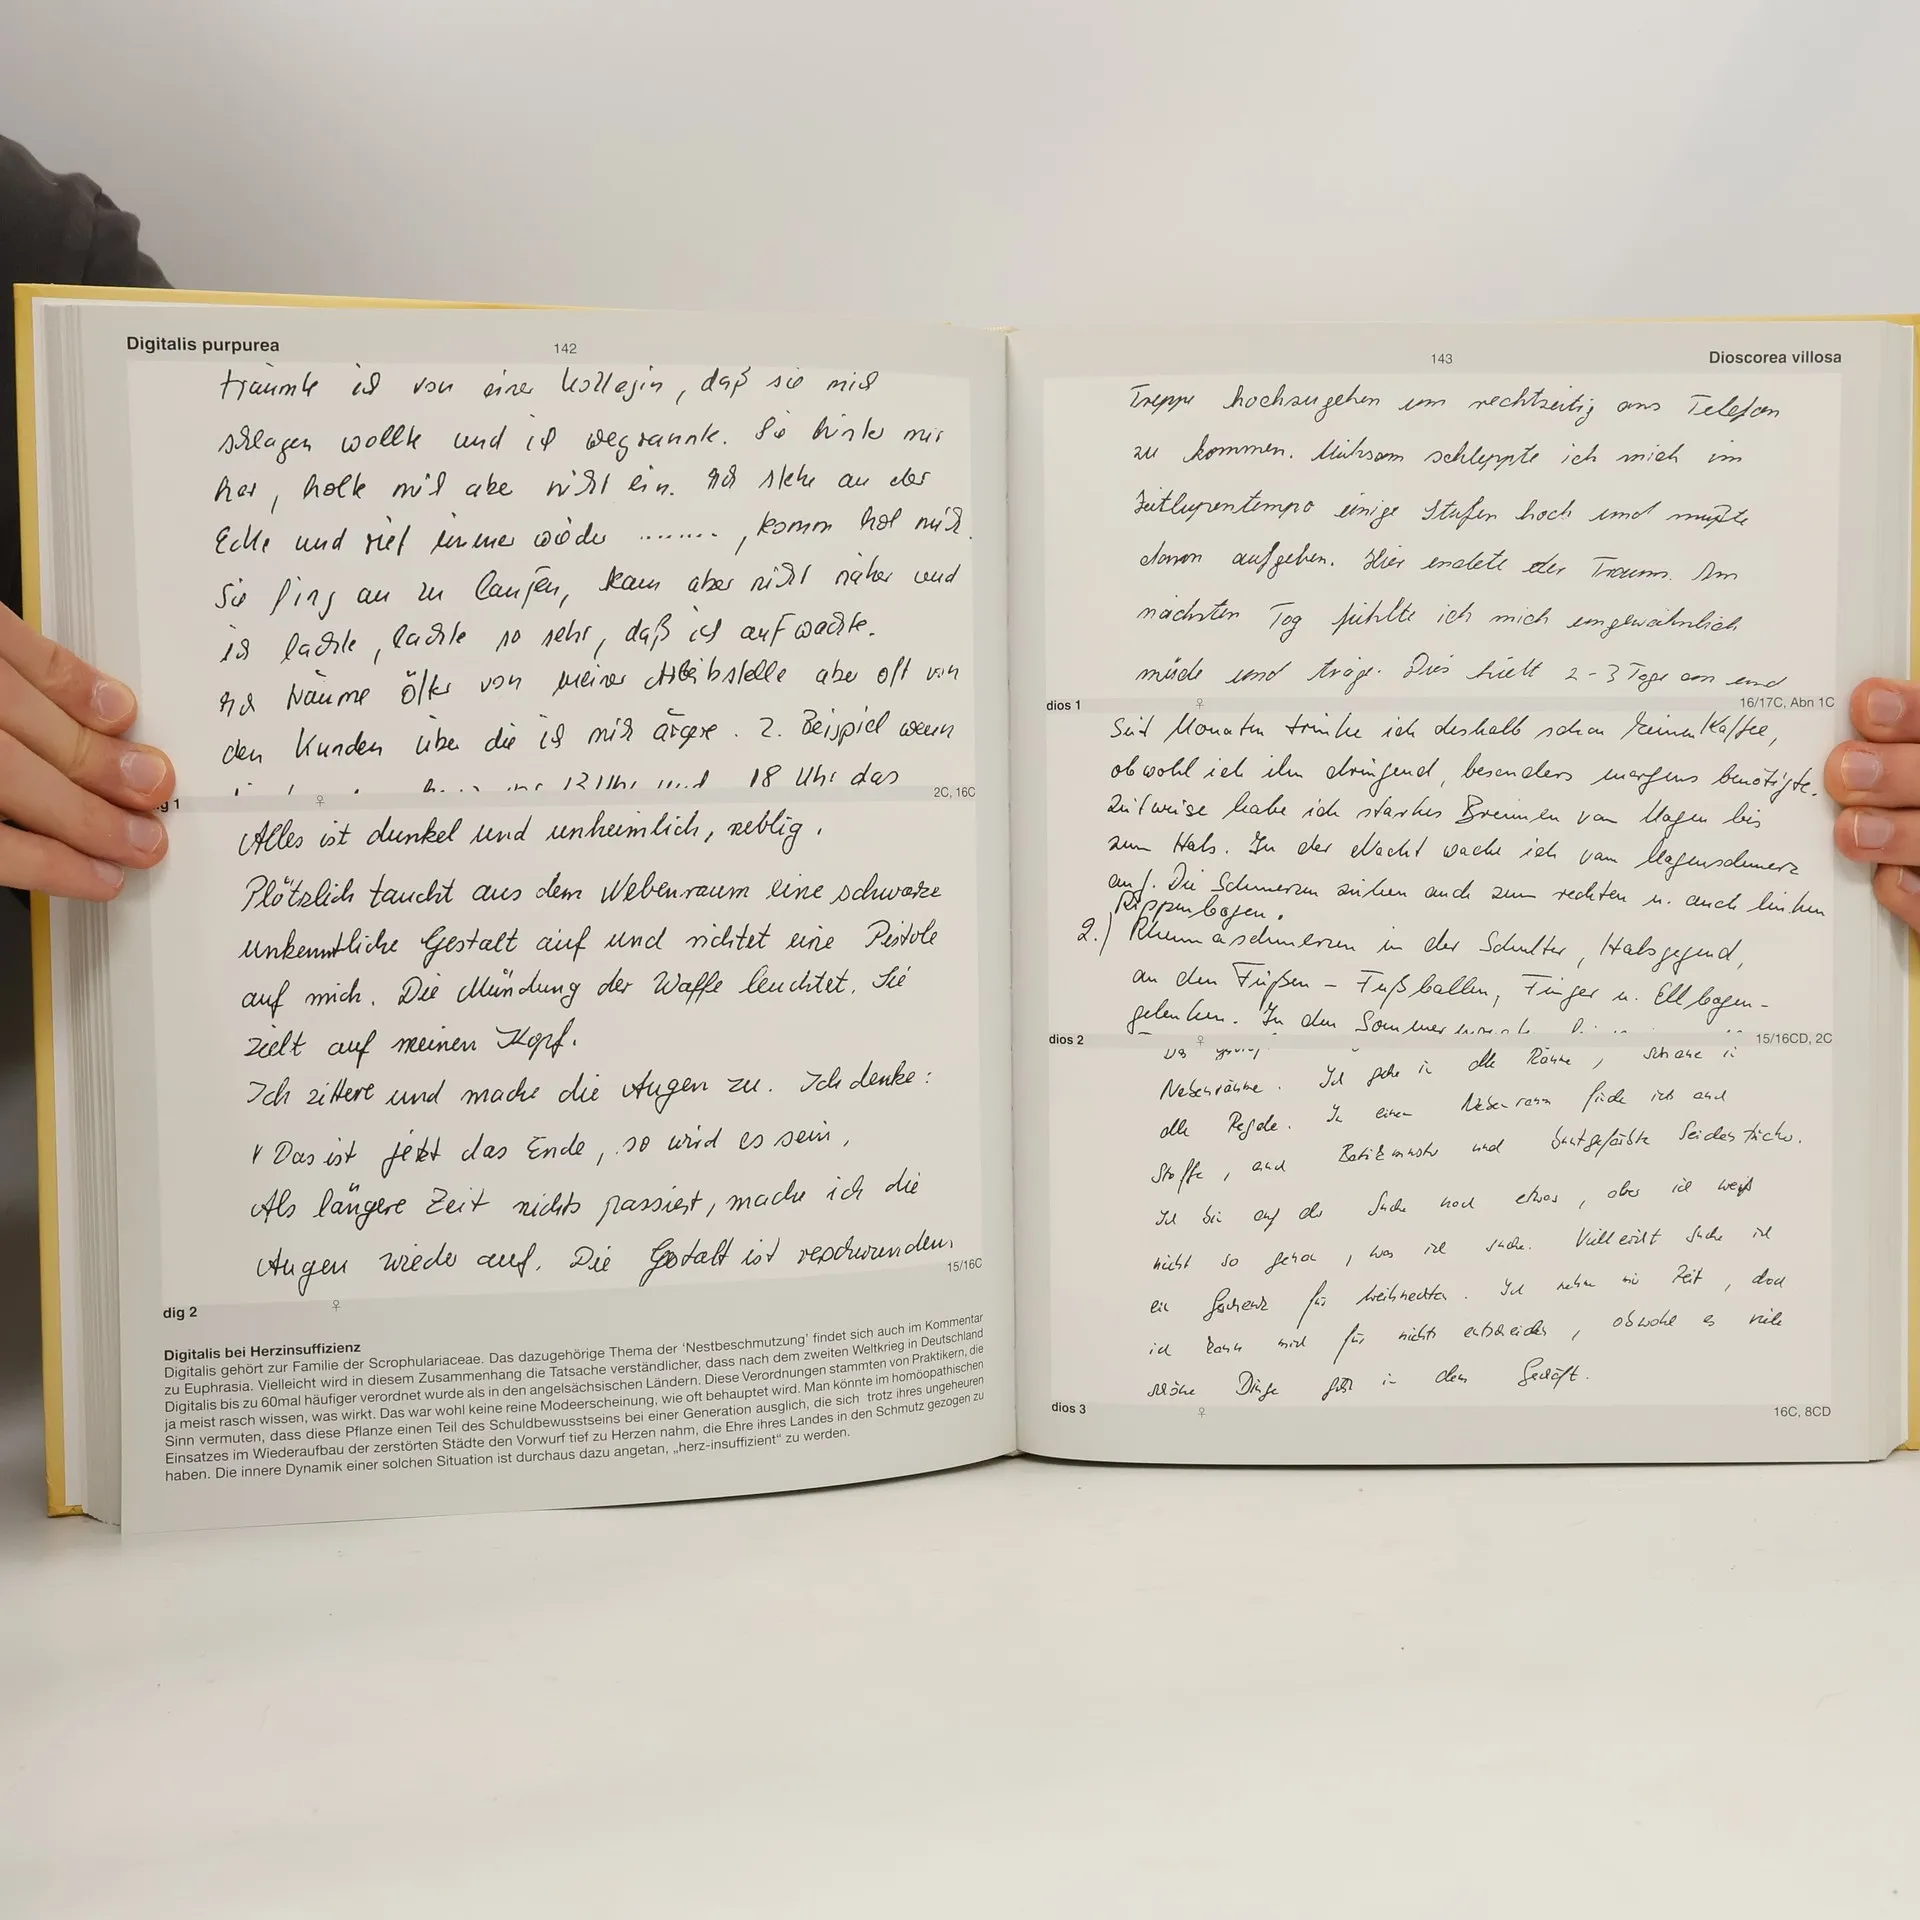 Digitalis purpurea
142
träumte ich von einer Kollegin, daß sie mich
schlagen wollte und ich wegrannte. Sie hinter mir
her, holte mich aber nicht ein. Ich stehe an der
Ecke und rief immer wieder ........, komm hol mich.
Sie fing an zu laufen, kam aber nicht näher und
ich lachte, lachte so sehr, daß ich aufwachte.
Ich träume öfter von meiner Arbeitsstelle aber oft von
den Kunden über die ich mich ärgere. 2. Beispiel wenn
12 Uhr und 18 Uhr das
ig 1
♀
2C, 16C
Alles ist dunkel und unheimlich, neblig.
Plötzlich taucht aus dem Nebenraum eine schwarze
unkenntliche Gestalt auf und richtet eine Pistole
auf mich. Die Mündung der Waffe leuchtet. Sie
zielt auf meinen Kopf.
Ich zittere und mache die Augen zu. Ich denke:
" Das ist jetzt das Ende, so wird es sein,
Als längere Zeit nichts passiert, mache ich die
Augen wieder auf. Die Gestalt ist verschwunden.
15/16C
dig 2
♀
Digitalis bei Herzinsuffizienz
Digitalis gehört zur Familie der Scrophulariaceae. Das dazugehörige Thema der 'Nestbeschmutzung' findet sich auch im Kommentar
zu Euphrasia. Vielleicht wird in diesem Zusammenhang die Tatsache verständlicher, dass nach dem zweiten Weltkrieg in Deutschland
Digitalis bis zu 60mal häufiger verordnet wurde als in den angelsächsischen Ländern. Diese Verordnungen stammten von Praktikern, die
ja meist rasch wissen, was wirkt. Das war wohl keine reine Modeerscheinung, wie oft behauptet wird. Man könnte im homöopathischen
Sinn vermuten, dass diese Pflanze einen Teil des Schuldbewusstseins bei einer Generation ausglich, die sich trotz ihres ungeheuren
Einsatzes im Wiederaufbau der zerstörten Städte den Vorwurf tief zu Herzen nahm, die Ehre ihres Landes in den Schmutz gezogen zu
haben. Die innere Dynamik einer solchen Situation ist durchaus dazu angetan, „herz-insuffizient" zu werden.
143
Dioscorea villosa
Treppe hochzugehen um rechtzeitig ans Telefon
zu kommen. Mühsam schleppte ich mich im
Zeitlupentempo einige Stufen hoch und mußte
dann aufgeben. Hier endete der Traum. Am
nächsten Tag fühlte ich mich ungewöhnlich
müde und träge. Dies hielt 2-3 Tage an und
dios 1
♀
16/17C, Abn 1C
Seit Monaten trinke ich deshalb schon keinen Kaffee,
obwohl ich ihn dringend, besonders morgens benötigte.
Zeitweise habe ich starkes Brennen vom Magen bis
zum Hals. In der Nacht wache ich vom Magenschmerz
auf. Die Schmerzen ziehen auch zum rechten u. auch linken
Rippenbogen.
2.) Rheumaschmerzen in der Schulter, Halsgegend,
an den Füßen - Fußballen, Finger u. Ellbogen-
gelenken. In den Sommer
dios 2
♀
15/16CD, 2C
Nebenräume. Ich gehe in alle Räume, schaue in
alle Regale. In einem Nebenraum finde ich auch
Stoffe, auch Batikmuster und buntgefärbte Seidentücher.
Ich bin auf der Suche nach etwas, aber ich weiß
nicht so genau, was ich suche. Vielleicht suche ich
ein Geschenk für Weihnachten. Ich nehme mir Zeit, doch
ich kann mich für nichts entscheiden, obwohl es viele
schöne Dinge gibt in dem Geschäft.
dios 3
♀
16C, 8CD